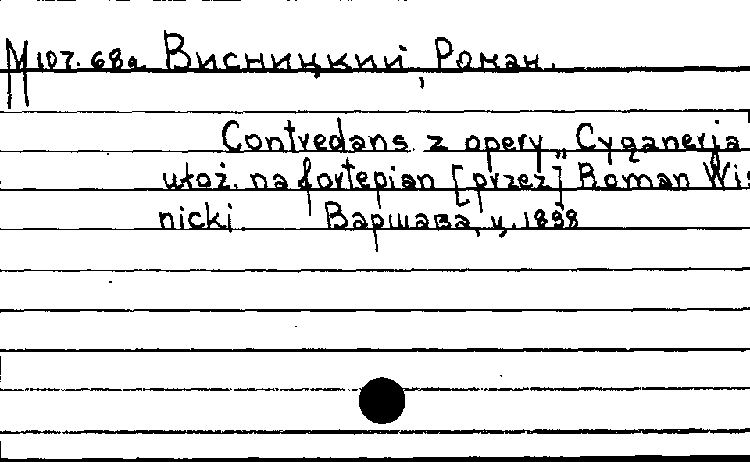 M 107.68a Висницкий, Роман.
Contredans z opery „Cyganerja
ułoż. na fortepian [przez] Roman Wis
nicki. Варшава, ц. 1898